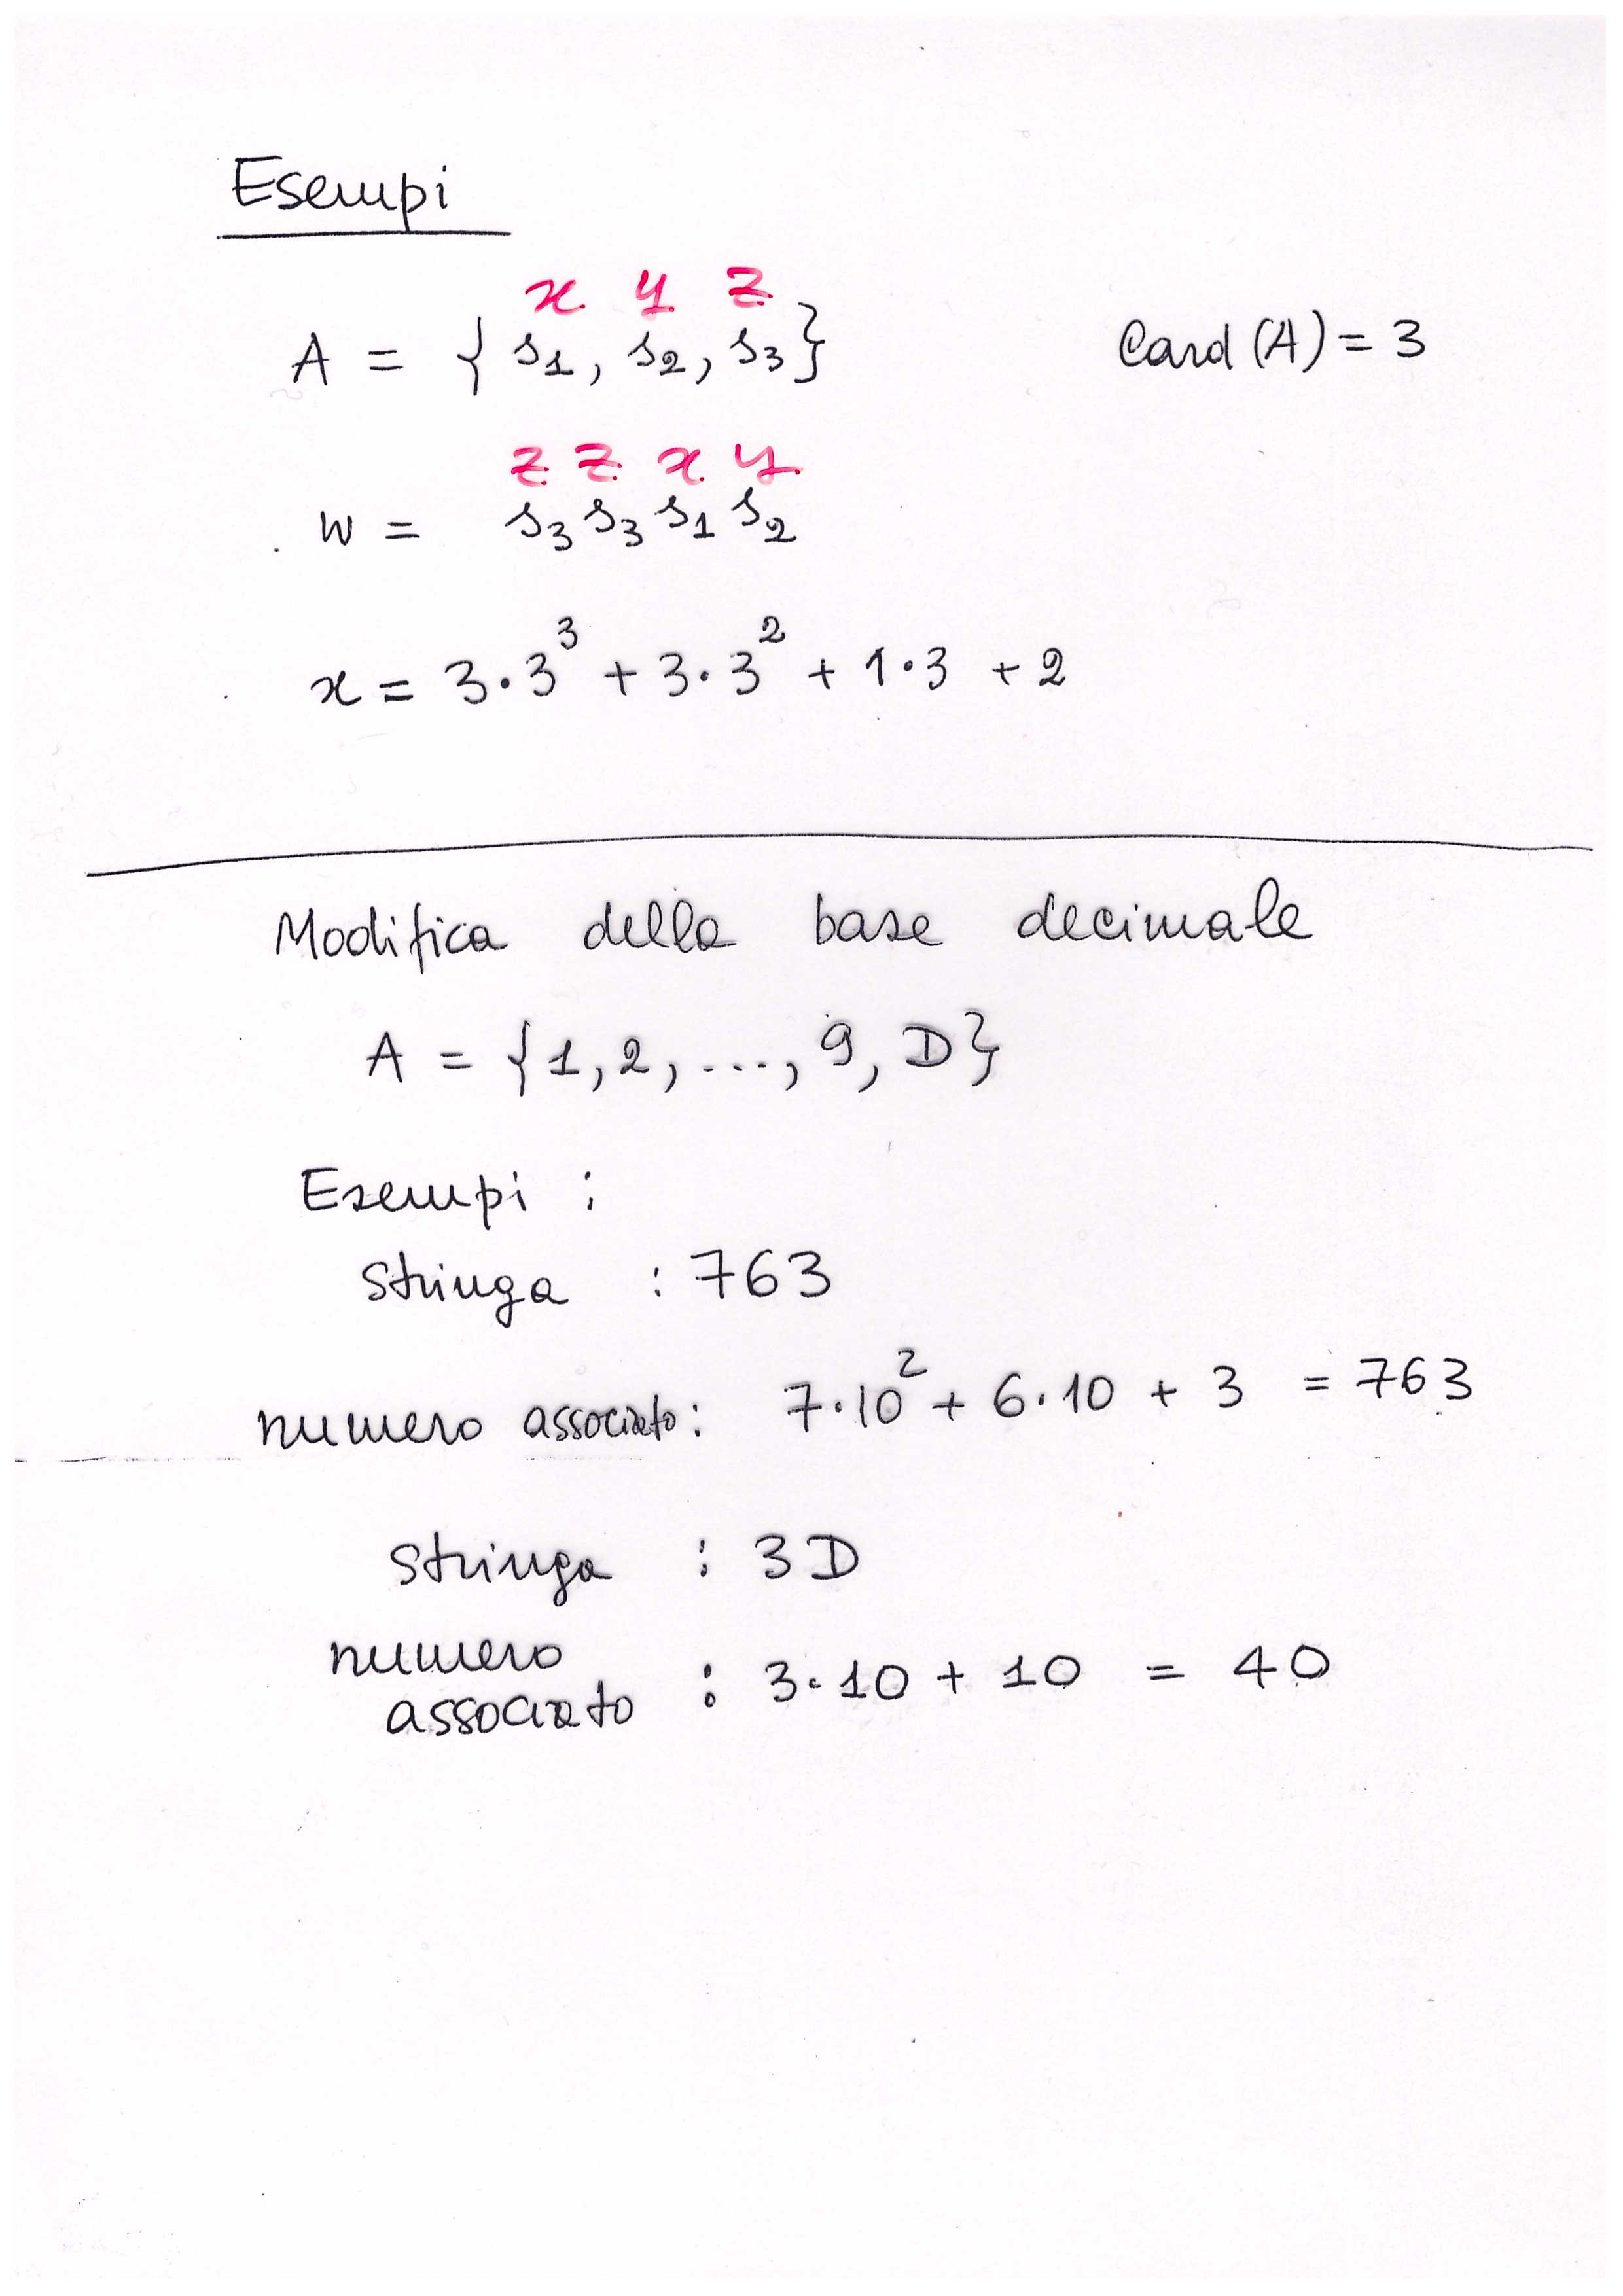 Esempi
x y z
A = { s₁, s₂, s₃}
Card (A) = 3
z z x y
w = s₃ s₃ s₁ s₂
x = 3·3³ + 3·3² + 1·3 + 2
Modifica della base decimale
A = {1, 2, ..., 9, D}
Esempi :
stringa : 763
numero associato: 7·10² + 6·10 + 3 = 763
stringa : 3D
numero
associato : 3·10 + 10 = 40